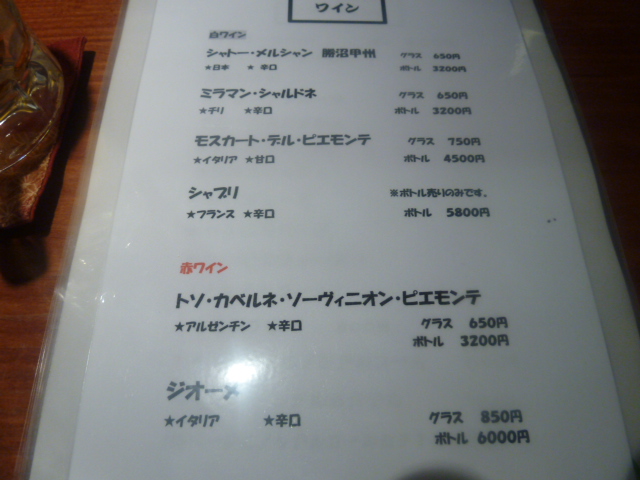 ワイン
白ワイン
シャトー・メルシャン 勝沼甲州 グラス 650円
★日本 ★辛口 ボトル 3200円
ミラマン・シャルドネ グラス 650円
★チリ ★辛口 ボトル 3200円
モスカート・デル・ピエモンテ グラス 750円
★イタリア ★甘口 ボトル 4500円
シャブリ ※ボトル売りのみです。
★フランス ★辛口 ボトル 5800円
赤ワイン
トソ・カベルネ・ソーヴィニオン・ピエモンテ
★アルゼンチン ★辛口 グラス 650円
ボトル 3200円
ジオーメ
★イタリア ★辛口 グラス 850円
ボトル 6000円